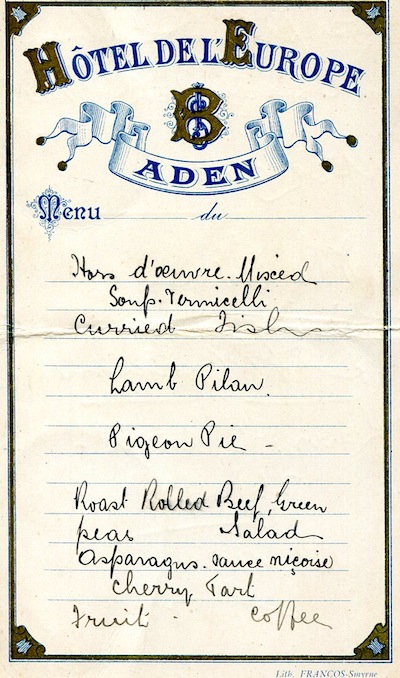 HÔTEL DE L'EUROPE
B
ADEN
Menu du
Hors d'œuvre. Mixed
Soup. Vermicelli
Curried Fish
Lamb Pilau.
Pigeon Pie -
Roast Rolled Beef, Green
peas Salad
Asparagus. sauce niçoise
Cherry Tart
Fruit - Coffee
Lith. FRANCOS-Smyrne